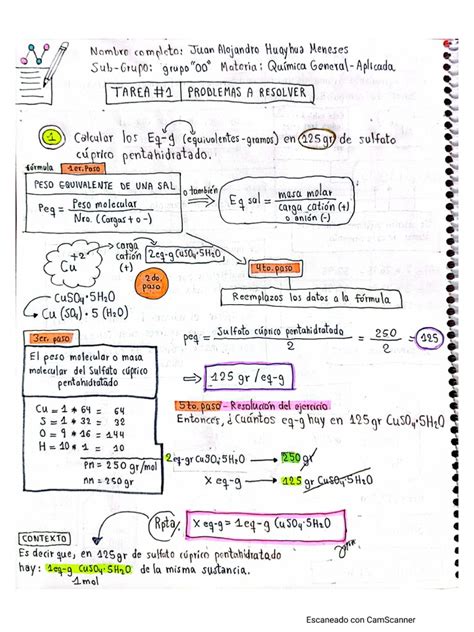 Nombre completo: Juan Alejandro Huayhua Meneses
Sub-Grupo: grupo "00" Materia: Química General-Aplicada
TAREA #1 | PROBLEMAS A RESOLVER
1 Calcular los Eq-g (equivalentes-gramos) en 125 gr de sulfato
cúprico pentahidratado.
fórmula 1er. Paso
PESO EQUIVALENTE DE UNA SAL
Peq = Peso molecular / Nro. (Cargas + o -)
o también
Eq sal = masa molar / carga catión (+) o anión (-)
Cu +2
carga catión (+)
2eq-g CuSO4·5H2O
2do. paso
CuSO4·5H2O
Cu (SO4)·5 (H2O)
4to. paso
Reemplazos los datos a la fórmula
peq = Sulfato cúprico pentahidratado / 2 = 250 / 2 = 125
125 gr /eq-g
3er. paso
El peso molecular o masa
molecular del Sulfato cúprico
pentahidratado
Cu = 1 * 64 = 64
S = 1 * 32 = 32
O = 9 * 16 = 144
H = 10 * 1 = 10
pm = 250 gr/mol
mm = 250 gr
5to. paso - Resolución del ejercicio
Entonces, ¿Cuántos eq-g hay en 125 gr CuSO4·5H2O
2eq-gr CuSO4·5H2O → 250 gr
X eq-g → 125 gr CuSO4·5H2O
Rpta: X eq-g = 1eq-g CuSO4·5H2O
CONTEXTO
Es decir que, en 125 gr de sulfato cúprico pentahidratado
hay: 1eq-g CuSO4·5H2O de la misma sustancia.
1mol
Escaneado con CamScanner